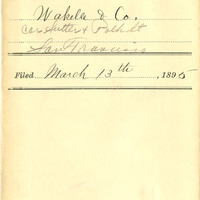 Wakelee & Co.
Cor Sutter & Polk St
San Francisco
Filed March 13th, 1895